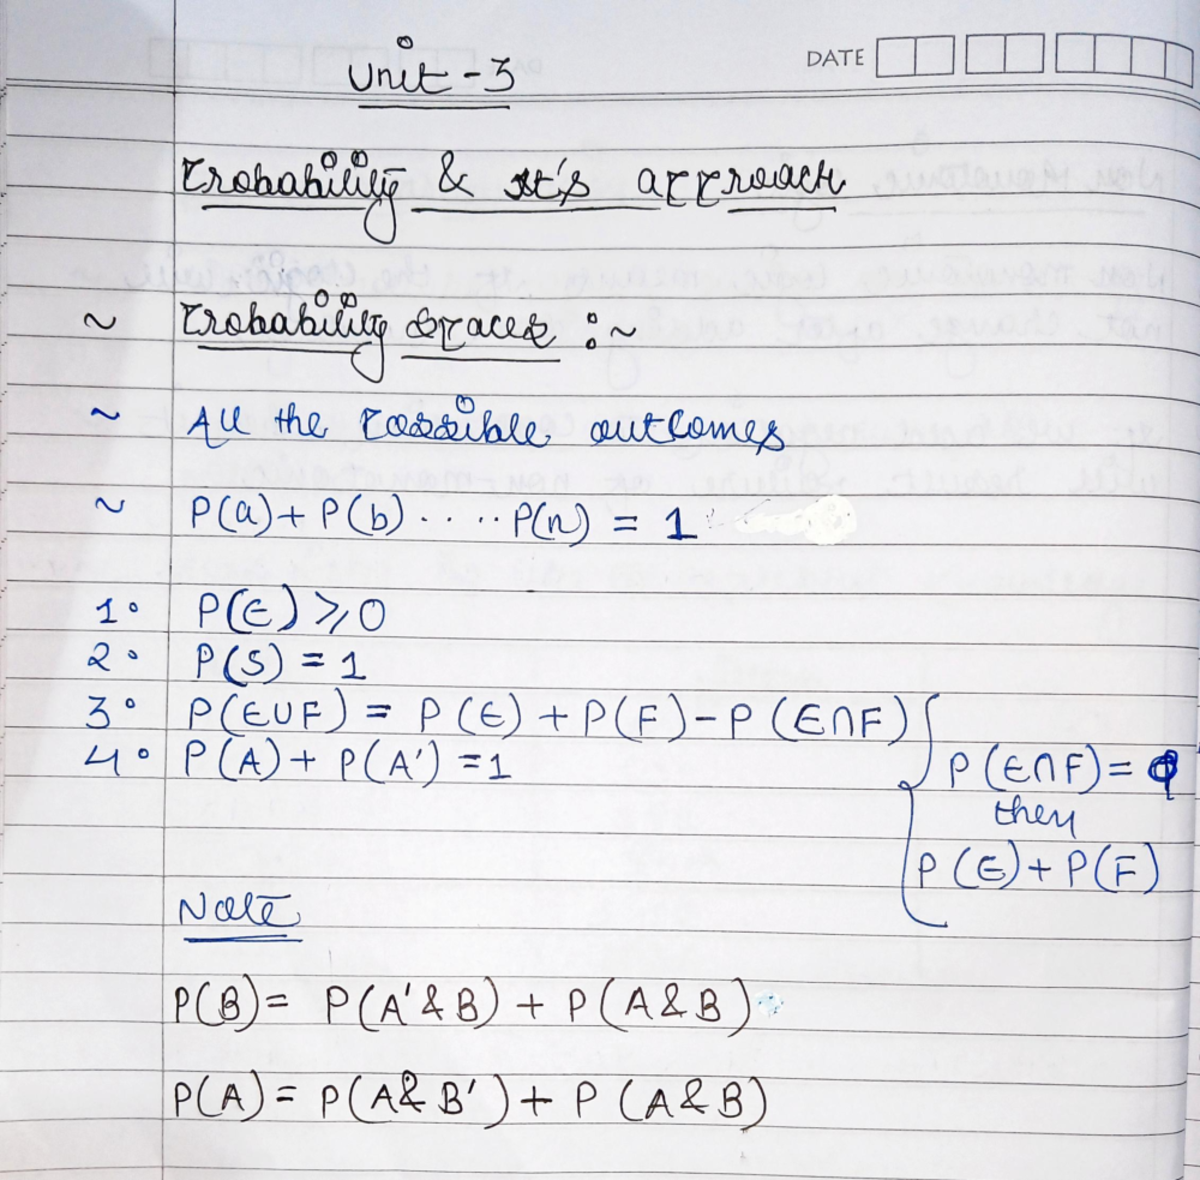 DATE
Unit - 3
Probability & it's approach
~ Probability spaces :~
~ All the possible outcomes
~ P(a) + P(b) . . . . P(n) = 1
1. P(E) ⩾ 0
2. P(S) = 1
3. P(E∪F) = P(E) + P(F) - P(E∩F)
4. P(A) + P(A') = 1
P(E∩F) = φ
then
P(E) + P(F)
Note
P(B) = P(A' & B) + P(A & B)
P(A) = P(A & B') + P(A & B)